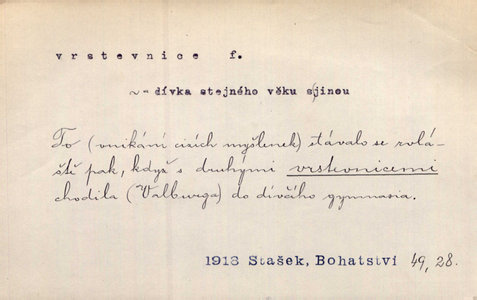 vrstevnice f.
~ = dívka stejného věku s jinou
To (vnikání cizích myšlenek) stávalo se zvlá-
ště pak, když s druhými vrstevnicemi
chodila (Valburga) do dívčího gymnasia.
1918 Stašek, Bohatství 49, 28.